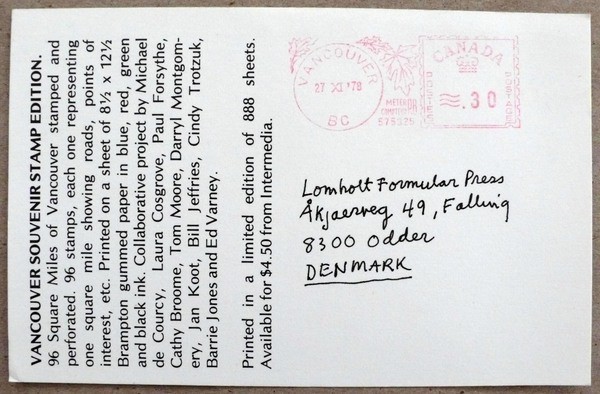 VANCOUVER SOUVENIR STAMP EDITION.
96 Square Miles of Vancouver stamped and
perforated. 96 stamps, each one representing
one square mile showing roads, points of
interest, etc. Printed on a sheet of 8½ x 12½
Brampton gummed paper in blue, red, green
and black ink. Collaborative project by Michael
de Courcy, Laura Cosgrove, Paul Forsythe,
Cathy Broome, Tom Moore, Darryl Montgom-
ery, Jan Koot, Bill Jeffries, Cindy Trotzuk,
Barrie Jones and Ed Varney.
Printed in a limited edition of 888 sheets.
Available for $4.50 from Intermedia.
VANCOUVER
27 XI '78
BC
METER
CANADA
.30
Lomholt Formular Press
Åkjaerveg 49, Falling
8300 Odder
DENMARK